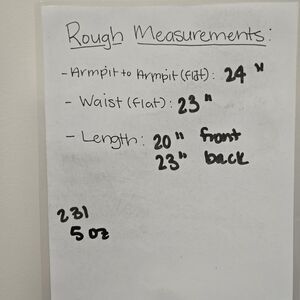 Rough Measurements:
- Armpit to Armpit (flat): 24"
- Waist (flat): 23"
- Length: 20" front
23" back
231
5 oz